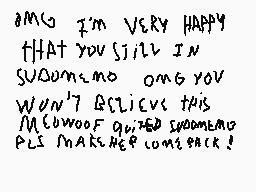 OMG I'M VERY HAPPY
tHAt YOU StILL IN
SUDOMEMO OMG YOU
WON'T BELIEVE tHiS
MEOWOOF QUITED SUDOMEMO
PLS MAKE HER COME BACK!